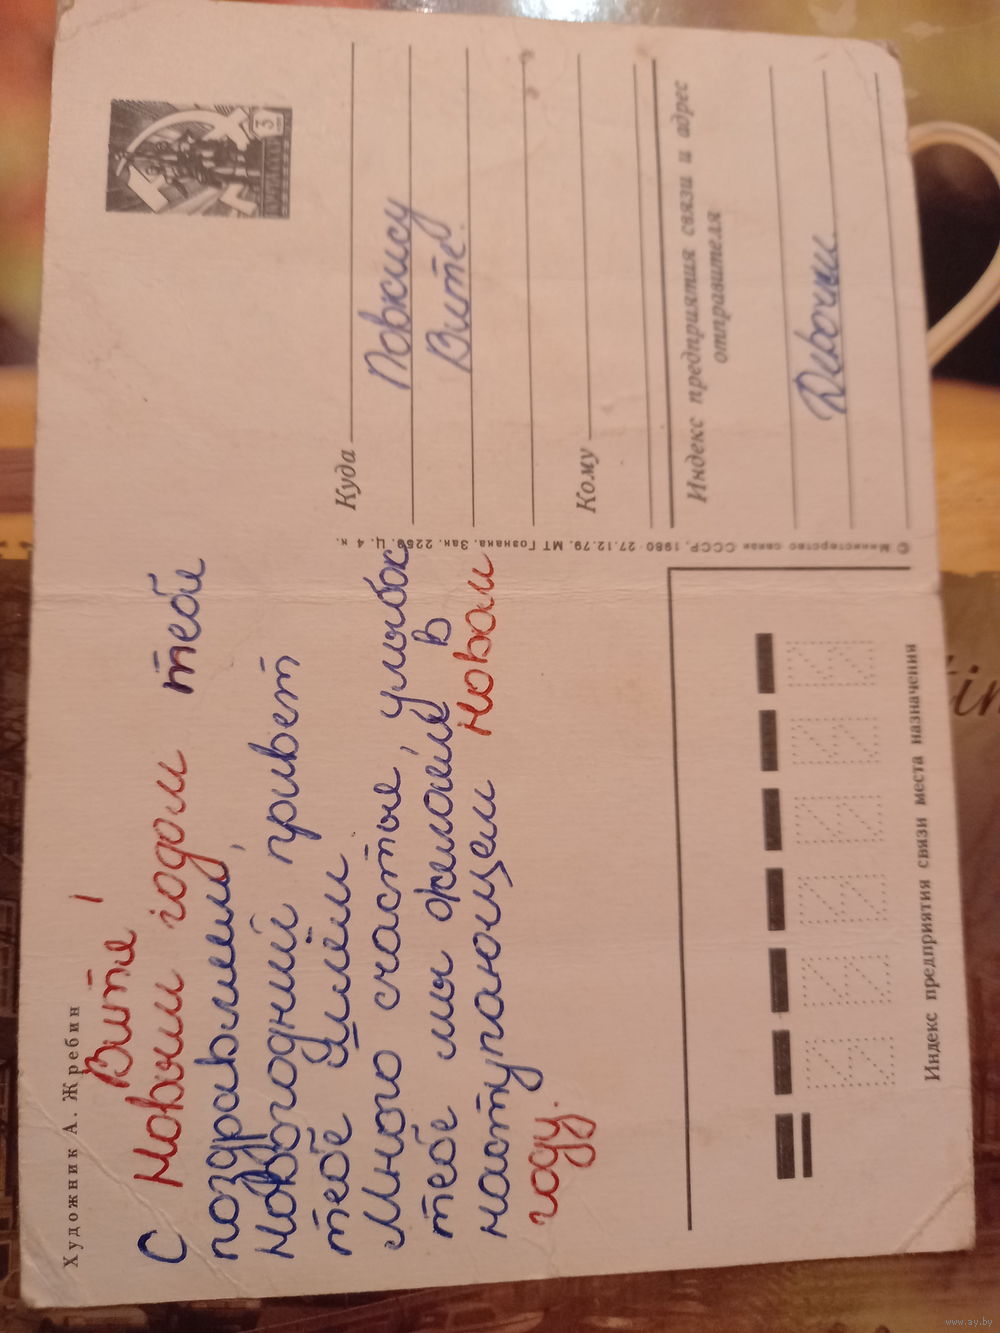 Художник А. Жребин
Витя!
С Новым годом тебя
поздравляем,
Новогодний привет
тебе шлём
Много счастья, улыбок
тебе мы желаем в
наступающем новам
году.
Куда
Повжису
Вите.
Кому
Индекс предприятия связи и адрес
отправителя
Девочки.
© Министерство связи СССР, 1980 27.12.79. МТ Гознака. Зак. 2259. Ц. 4 к.
Индекс предприятия связи места назначения
3
www.ay.by